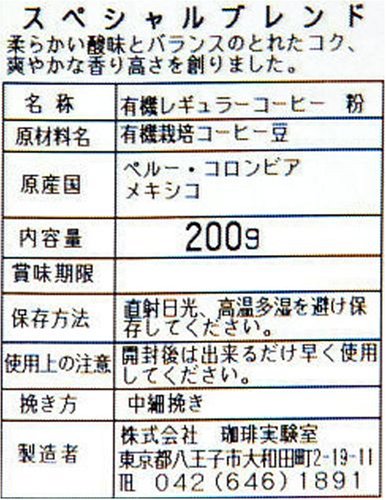 スペシャルブレンド
柔らかい酸味とバランスのとれたコク、
爽やかな香り高さを創りました。
名称 有機レギュラーコーヒー 粉
原材料名 有機栽培コーヒー豆
原産国 ペルー・コロンビア
メキシコ
内容量 200g
賞味期限
保存方法 直射日光、高温多湿を避け保
存してください。
使用上の注意 開封後は出来るだけ早く使用
してください。
挽き方 中細挽き
製造者 株式会社 珈琲実験室
東京都八王子市大和田町2-19-11
℡ 042(646)1891